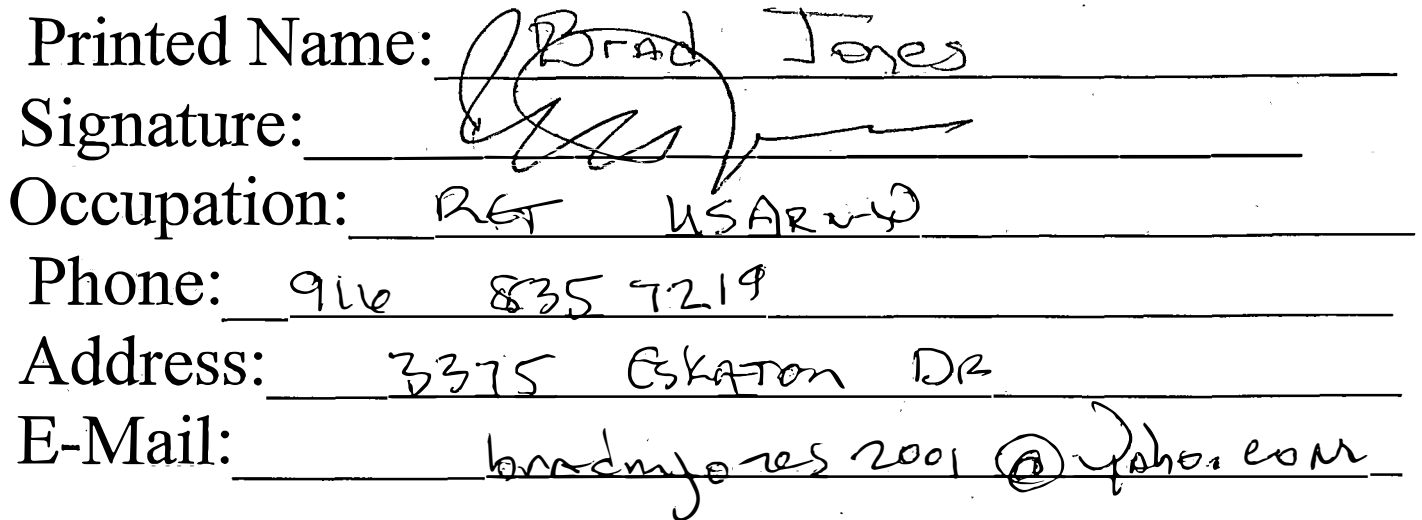 Printed Name: Brad Jones
Signature:
Occupation: RET USARMY
Phone: 916 835 7219
Address: 3375 ESKATON DR
E-Mail: bradmjones2001@yaho.com